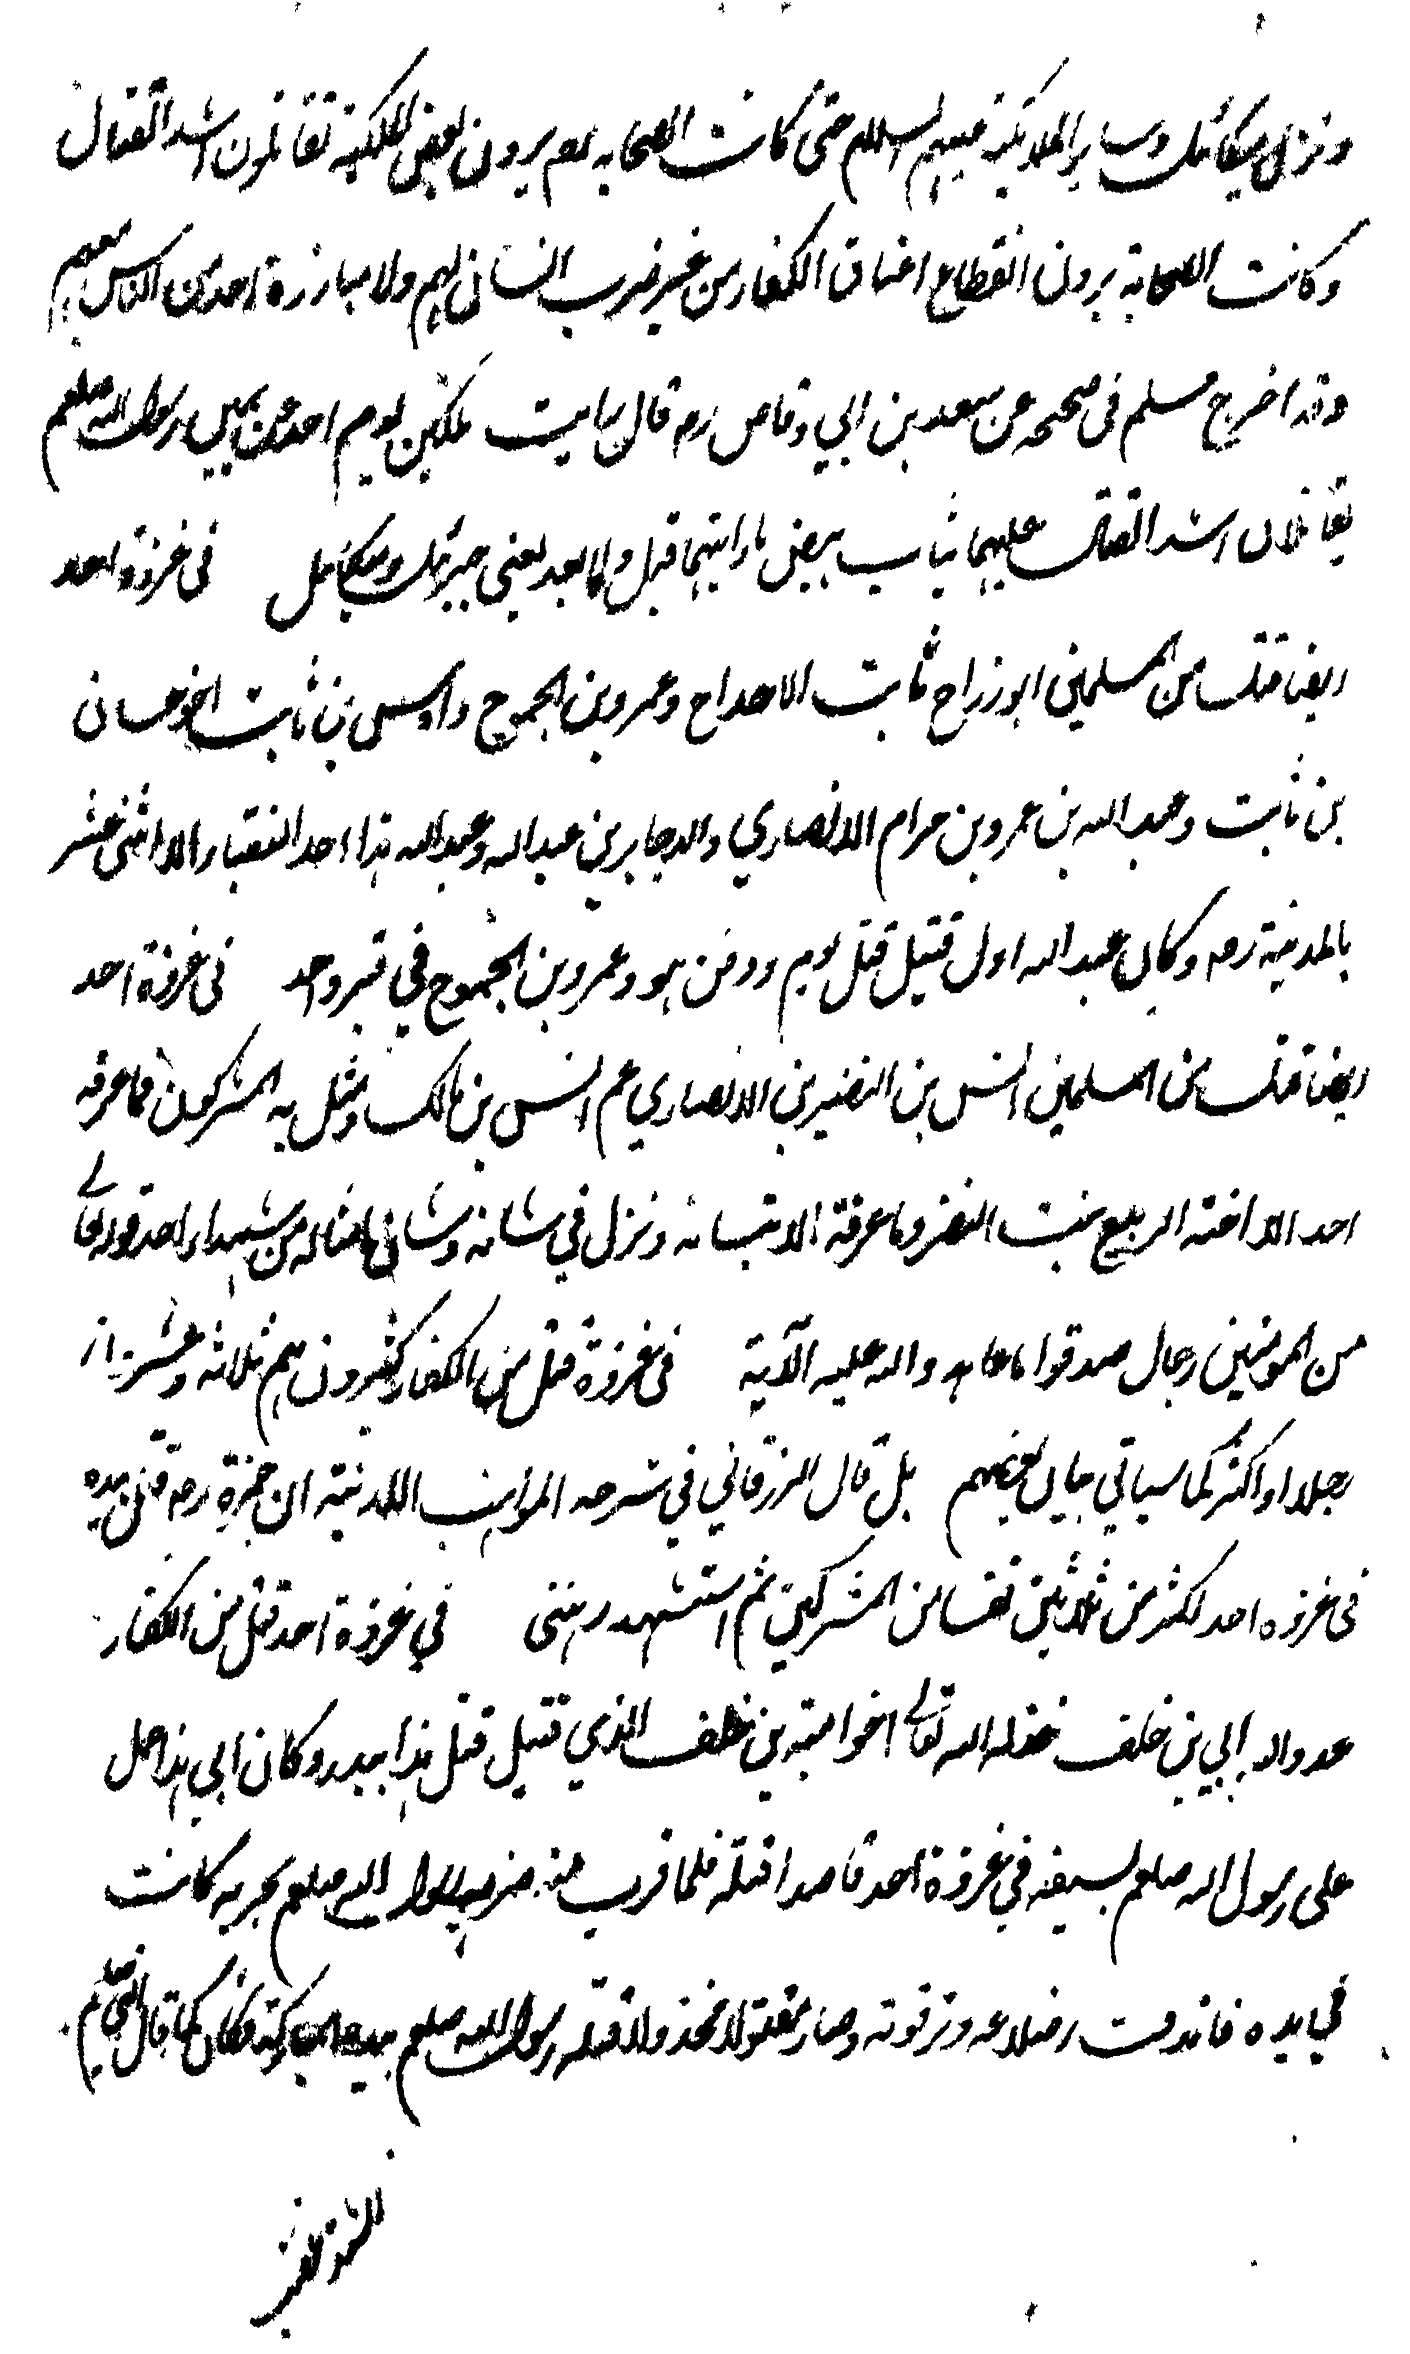 ونزل ميكائيل وساير الملائكة عليهم السلام حتى كانت الصحابه رضم يرون بعض الملئكة تقاتلون اشد القتال
وكانت الصحابة يرون انقطاع اعناق الكفار من غير ضرب انسان لهم ولا مبارزة احد من الناس معهم
وقد اخرج مسلم فى صحيحه عن سعد بن ابي وقاص رم قال رايت ملكين يوم احد عن يمين رسول الله صلعم
يقاتلان اشد القتال عليهما ثياب بيض ما رايتهما قبل ولا بعد يعنى جبرئيل وميكائيل فى غزوة احد
ايضا قتل من المسلمين ابو زراح ثابت الاحداح وعمرو بن الجموح واوس بن ثابت اخو حسان
بن ثابت وعبد الله بن عمرو بن حرام الانصاري والد جابر بن عبد الله وعبد الله هذا احد النقباء الاثنى عشر
بالمدينة رم وكان عبد الله اول قتيل قتل يوم ودفن هو وعمرو بن الجموح في قبر واحد فى غزوة احد
ايضا قتل من المسلمين انس بن النضير بن الانصاري عم انس بن مالك ومثل به المشركون فما عرفه
احد الا اخته الربيع بنت النضر وما عرفة الا ببنانه ونزل في شانه وشان امثاله من شهداء احد قوله تعالى
من المؤمنين رجال صدقوا ما عاهدوا الله عليه الآية فى غزوة قتل من الكفار كثيرون هم ثلاثة وعشرون
رجلا او اكثر كما سياتي بيان بعضهم بل قال الزرقاني في شرحه المواهب اللدنية ان حمزة رم قتل بيده
فى غزوه احد اكثر من ثلاثين نفسا من المشركين ثم استشهد رم في غزوة احد قتل من الكفار
عدو الله ابي بن خلف خذله الله تعالى اخو امية بن خلف الذي قتيل قتل هذا ببدر وكان ابي هذا حمل
على رسول الله صلعم بسيفه في غزوة احد قاصدا قتله فلما قرب منه ضربه رسول الله صلعم بحربة كانت
في يده فاندقت اضلاعه وترقوته وصار مقتولا مخذولا قتله رسول الله صلعم بيده فكان كما قال النبي صلعم